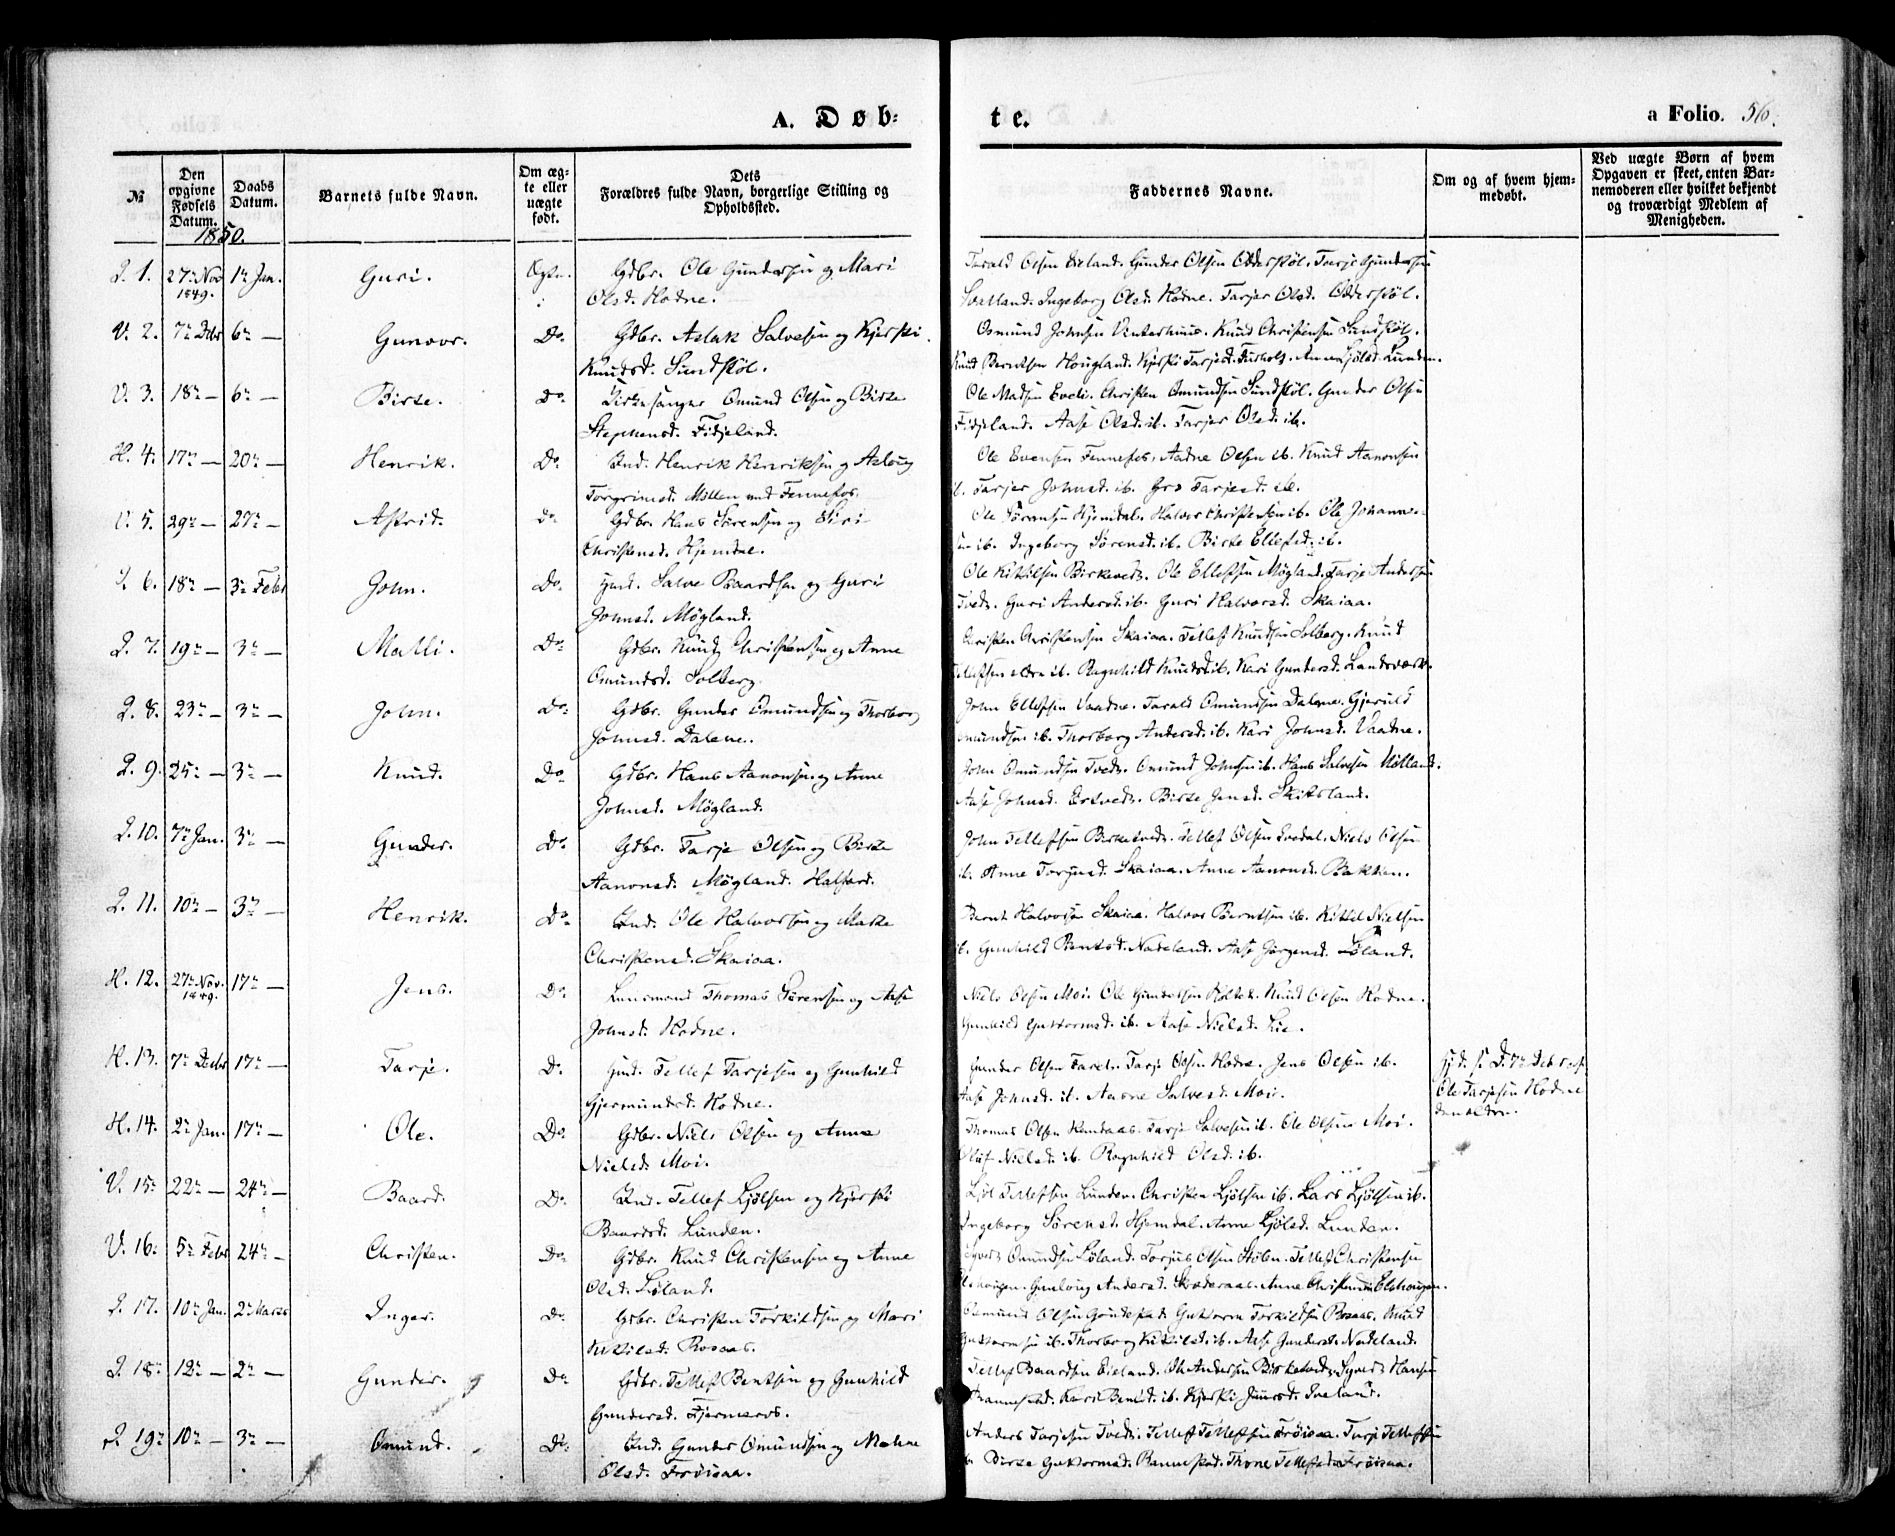 A. Døb=
te.
a Folio. 56.
№
Den
opgivne
Fødsels
Datum.
Daabs
Datum.
Barnets fulde Navn.
Om æg-
te eller
uægte
født.
Dets
Forældres fulde Navn, borgerlige Stilling og
Opholdssted.
Faddernes Navne.
Om og af hvem hjem-
medøbt.
Ved uægte Børn af hvem
Opgaven er skeet, enten Bar-
nemoderen eller hvilket bekjendt
og troværdigt Medlem af
Menigheden.
1850.
1. 27de Nov 1849. 1ste Jan. Guri. Ægte. Gdbr. Ole Gundersen og Mari
Olsd. Hodne.
Tarald Olsen Eieland. Gunder Olsen Odderstøl. Tarje Gundersen
Ingeborg Olsd. Hodne. Tarjer Olsd. Odderstøl.
V. 2. 7de Debr 6te — Gunvor. Do. Gdbr. Aslak Salvesen og Kjersti
Knudsd. Sundstøl.
Osmund Johnsen Vinterhuus. Knud Christensen Sundstøl.
Knud Berntsen Hougland. Kjersti Tarjesd. Anne Ljølsd. Lunden.
V. 3. 18de — 6te — Birte. Do. Kirkesanger Omund Olsen og Birte
Stephensd. Fidjeland.
Ole Madsen Eveli. Christen Omundsen Sundstøl. Gunder Olsen
Fidjeland. Aase Olsd. ib. Tarjer Olsd. ib.
H. 4. 17de — 20de — Henrik. Do. Ind. Henrik Henriksen og Aslaug
Torgrimsd. Mollen ved Fennefos.
Ole Evensen Fennefos. Aadne Olsen ib. Knud Aanonsen
ib. Tarjer Johnsd. ib. Gro Tarjesd. ib.
V. 5. 29de — 27de — Astrid. Do. Gdbr. Hans Sørensen og Siri
Christensd. Hjemdal.
Ole Sørensen Hjemdal. Halvor Christensen ib. Ole Johanne-
sen ib. Ingeborg Sørensd. ib. Birte Ellefsd. ib.
6. 18de — 3de Febr John. Do. Salve Baardsen og Guri
Johnsd. Mögland.
Ole Kittilsen Birketvedt. Ole Ellefsen Mögland. Tarje Andersen
Tvedt. Guri Andersd. ib. Guri Halvorsd. Skaiaa.
7. 19de — 3de — Malli. Do. Gdbr. Knud Christensen og Anne
Omundsd. Solberg.
Christen Christensen Skaiaa. Tellef Knudsen Solberg. Knud
Tellefsen ib. Ragnhild Knudsd. ib. Kari Gundersd. Landsverk.
8. 23de — 3de — John. Do. Gdbr. Gunder Omundsen og Thorborg
Johnsd. Dalene.
John Ellefsen Vaadne. Tarald Omundsen Dalene. Gjeruld
Omundsen ib. Thorborg Andersd. ib. Kari Johnsd. Vaadne.
9. 25de — 3de — Knud. Do. Gdbr. Hans Aanonsen og Anne
Johnsd. Mögland.
John Omundsen Tvedt. Omund Johnsen ib. Hans Salvesen
Aase Johnsd. Ertvedt. Birte Jensd. Skiksland.
10. 7de Jan. 3de — Gunder. Do. Gdbr. Tarje Olsen og Birte
Aanonsd. Mögland.
John Tellefsen Birketvedt. Tellef Olsen Ivedal. Niels Olsen
ib. Anne Torjusd. Skaiaa. Anne Aanonsd. Bakken.
11. 10de — 3de — Henrik. Do. Ind. Ole Halvorsen og Marte
Christensd. Skaiaa.
Bernt Halvorsen Skaiaa. Halvor Berntsen ib. Kittil Nielsen
ib. Gunhild Berntsd. Nateland. Aase Jørgensd. Løland.
H. 12. 27de Nov. 1849. 17de — Jens. Do. Lensmand Thomas Sørensen og Aase
Johnsd. Hodne.
Niels Olsen Moi. Ole Gundersen Knud Olsen Hodne.
Gunhild Guttormsd. ib. Aase Nielsd. Lie.
H. 13. 7de Decbr 17de — Tarje. Do. Tellef Tarjesen og Gunhild
Gjermundsd. Hodne.
Gunder Olsen Tarje Olsen Hodne. Jens Olsen ib.
Aase Johnsd. ib. Salvesd. Moi.
Hjd. 7de Debr af
Ole Tarjesen Hodne
den ældre.
H. 14. 2den Jan. 17de — Ole. Do. Gdbr. Niels Olsen og Anne
Nielsd. Moi.
Thomas Olsen Tarje Salvesen ib. Ole Olsen Moi.
Nielsd. ib. Ragnhild Olsd. ib.
V. 15. 22de — 24de — Baard. Do. Ind. Tellef Ljølsen og Kjersti
Baardsd. Lunden.
Ljøl Tellefsen Lunden. Christen Ljølsen ib. Lars Ljølsen ib.
Ingeborg Sørensd. Hjemdal. Anne Ljølsd. Lunden.
V. 16. 5te Febr 24de — Christen. Do. Gdbr. Knud Christensen og Anne
Olsd. Løland.
Syvert Omundsen Løland. Torjus Olsen Tellef Christensen
Gunlaug Andersd. Anne Christensd. Elshougen.
17. 10de Jan. 2den Marts Inger. Do. Gdbr. Christen Torkildsen og Mari
Kittilsd. Rosaas.
Osmund Olsen Guttorm Torkildsen Rosaas. Knud
Guttormsen ib. Thorborg Kittilsd. ib. Aase Gundersd. Nateland.
18. 12te — 2den — Gunder. Do. Gdbr. Tellef Bentsen og Gunhild
Gundersd. Fjermeros.
Tellef Baardsen Eieland. Ole Andersen Birketvedt. Syvert Hansen
Kari Bentsd. ib. Kjersti Iveland.
19. 10de — 3de — Omund. Do. Ind. Gunder Omundsen og
Olsd. Frøisaa.
Anders Tarjesen Tvedt. Tellef Tellefsen Frøisaa. Tarje Tellefsen
ib. Birte Guttormsd. Rannestad. Thone Tellefsd. Frøisaa.